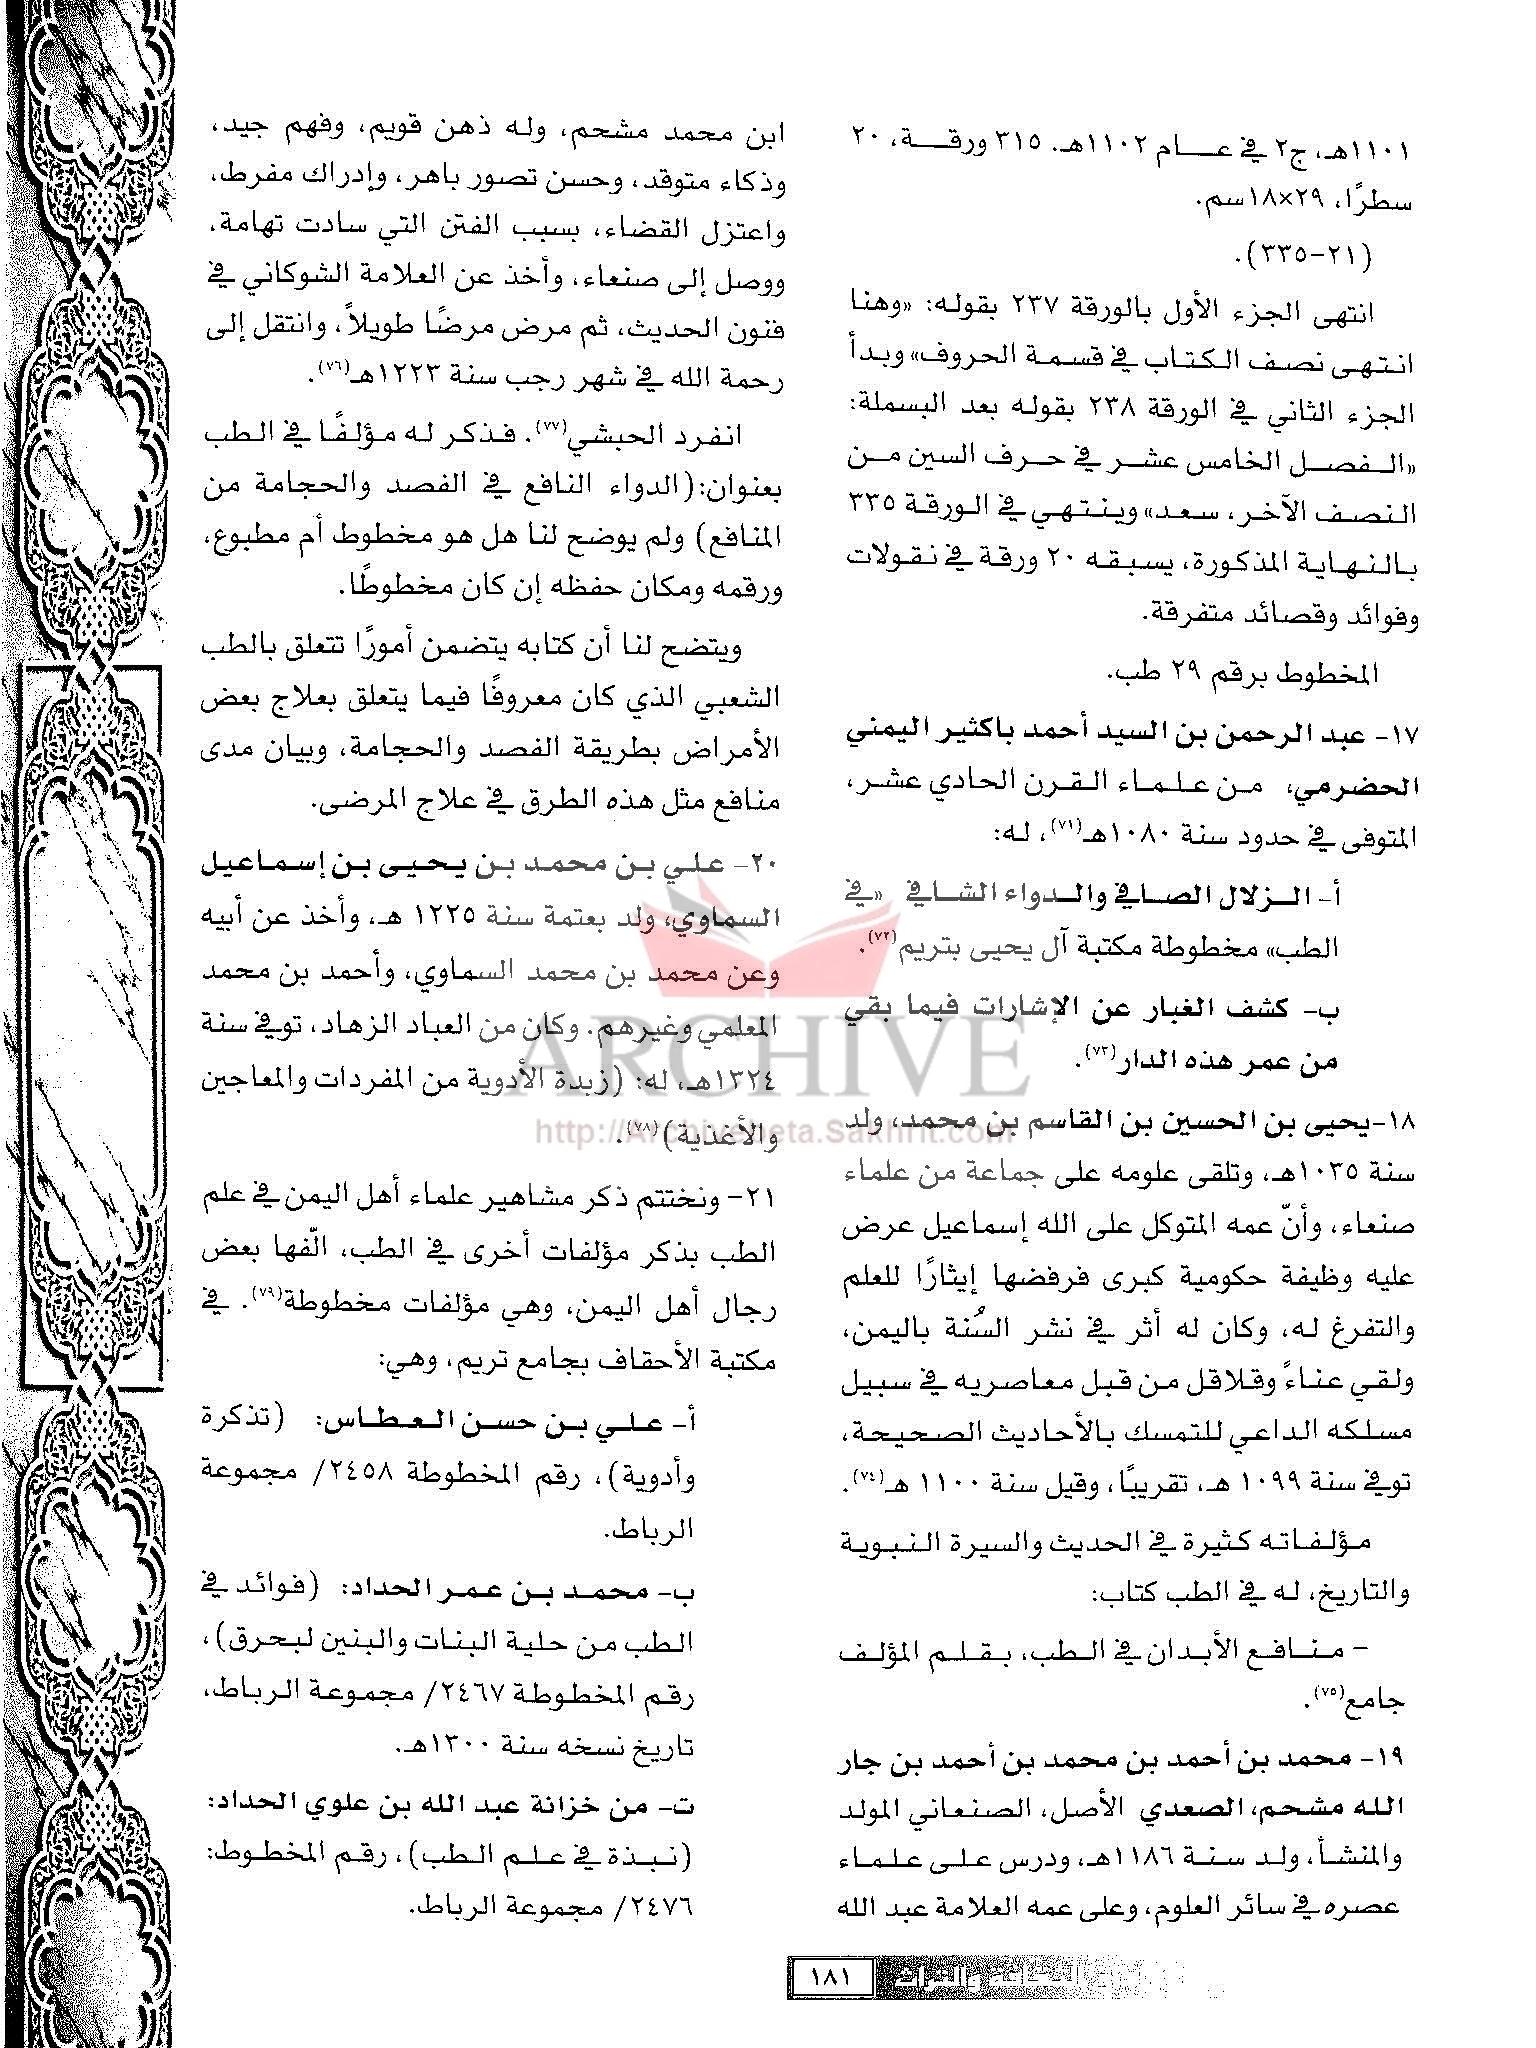 ١١٠١هـ، ج٢ في عـــام ١١٠٢هـ. ٣١٥ ورقـــة، ٢٠
سطرًا، ٢٩×١٨سم.
(٢١-٣٣٥).
انتهى الجزء الأول بالورقة ٢٣٧ بقوله: «وهنا
انتهى نصف الكتاب في قسمة الحروف» وبدأ
الجزء الثاني في الورقة ٢٣٨ بقوله بعد البسملة:
«الفصل الخامس عشر في حرف السين من
النصف الآخر، سعد» وينتهي في الورقة ٣٣٥
بالنهاية المذكورة، يسبقه ٢٠ ورقة في نقولات
وفوائد وقصائد متفرقة.
المخطوط برقم ٢٩ طب.
١٧- عبد الرحمن بن السيد أحمد باكثير اليمني
الحضرمي، من علماء القرن الحادي عشر،
المتوفى في حدود سنة ١٠٨٠هـ(٧١)، له:
أ- الزلال الصافي والدواء الشافي «في
الطب» مخطوطة مكتبة آل يحيى بتريم(٧٢).
ب- كشف الغبار عن الإشارات فيما بقي
من عمر هذه الدار(٧٣).
١٨-يحيى بن الحسين بن القاسم بن محمد، ولد
سنة ١٠٣٥هـ، وتلقى علومه على جماعة من علماء
صنعاء، وأنّ عمه المتوكل على الله إسماعيل عرض
عليه وظيفة حكومية كبرى فرفضها إيثارًا للعلم
والتفرغ له، وكان له أثر في نشر السُنة باليمن،
ولقي عناءً وقلاقل من قبل معاصريه في سبيل
مسلكه الداعي للتمسك بالأحاديث الصحيحة،
توفي سنة ١٠٩٩ هـ، تقريبًا، وقيل سنة ١١٠٠ هـ(٧٤).
مؤلفاته كثيرة في الحديث والسيرة النبوية
والتاريخ، له في الطب كتاب:
- منافع الأبدان في الطب، بقلم المؤلف
جامع(٧٥).
١٩- محمد بن أحمد بن محمد بن أحمد بن جار
الله مشحم، الصعدي الأصل، الصنعاني المولد
والمنشأ، ولد سنة ١١٨٦هـ، ودرس على علماء
عصره في سائر العلوم، وعلى عمه العلامة عبد الله
ابن محمد مشحم، وله ذهن قويم، وفهم جيد،
وذكاء متوقد، وحسن تصور باهر، وإدراك مفرط،
واعتزل القضاء، بسبب الفتن التي سادت تهامة،
ووصل إلى صنعاء، وأخذ عن العلامة الشوكاني في
فنون الحديث، ثم مرض مرضًا طويلاً، وانتقل إلى
رحمة الله في شهر رجب سنة ١٢٢٣هـ(٧٦).
انفرد الحبشي(٧٧). فذكر له مؤلفًا في الطب
بعنوان:(الدواء النافع في الفصد والحجامة من
المنافع) ولم يوضح لنا هل هو مخطوط أم مطبوع،
ورقمه ومكان حفظه إن كان مخطوطًا.
ويتضح لنا أن كتابه يتضمن أمورًا تتعلق بالطب
الشعبي الذي كان معروفًا فيما يتعلق بعلاج بعض
الأمراض بطريقة الفصد والحجامة، وبيان مدى
منافع مثل هذه الطرق في علاج المرضى.
٢٠- علي بن محمد بن يحيى بن إسماعيل
السماوي، ولد بعتمة سنة ١٢٢٥ هـ، وأخذ عن أبيه
وعن محمد بن محمد السماوي، وأحمد بن محمد
المعلمي وغيرهم. وكان من العباد الزهاد، توفي سنة
١٣٢٤هـ، له: (زبدة الأدوية من المفردات والمعاجين
والأغذية)(٧٨).
٢١- ونختتم ذكر مشاهير علماء أهل اليمن في علم
الطب بذكر مؤلفات أخرى في الطب، الّفها بعض
رجال أهل اليمن، وهي مؤلفات مخطوطة(٧٩). في
مكتبة الأحقاف بجامع تريم، وهي:
أ- علي بن حسن العطاس: (تذكرة
وأدوية)، رقم المخطوطة ٢٤٥٨/ مجموعة
الرباط.
ب- محمد بن عمر الحداد: (فوائد في
الطب من حلية البنات والبنين لبحرق)،
رقم المخطوطة ٢٤٦٧/ مجموعة الرباط،
تاريخ نسخه سنة ١٣٠٠هـ.
ت- من خزانة عبد الله بن علوي الحداد:
(نبذة في علم الطب)، رقم المخطوط:
٢٤٧٦/ مجموعة الرباط.
ARCHIVE
http://Archivebeta.Sakhrit.com
الثقافة والتراث
١٨١